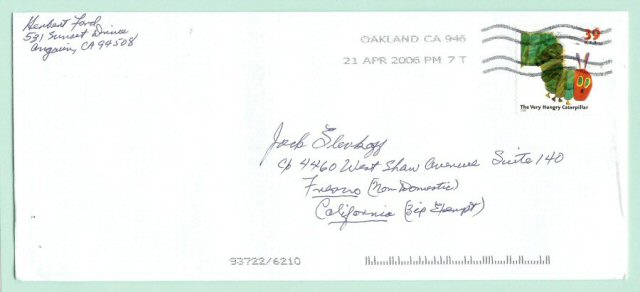 Herbert Ford
531 Sunset Drive
Angwin, CA 94508
OAKLAND CA 946
21 APR 2006 PM 7 T
39
The Very Hungry Caterpillar
Jack
c/o 4460 West Shaw Avenue Suite 140
Fresno (Non Domestic)
California (Zip Exempt)
93722/6210